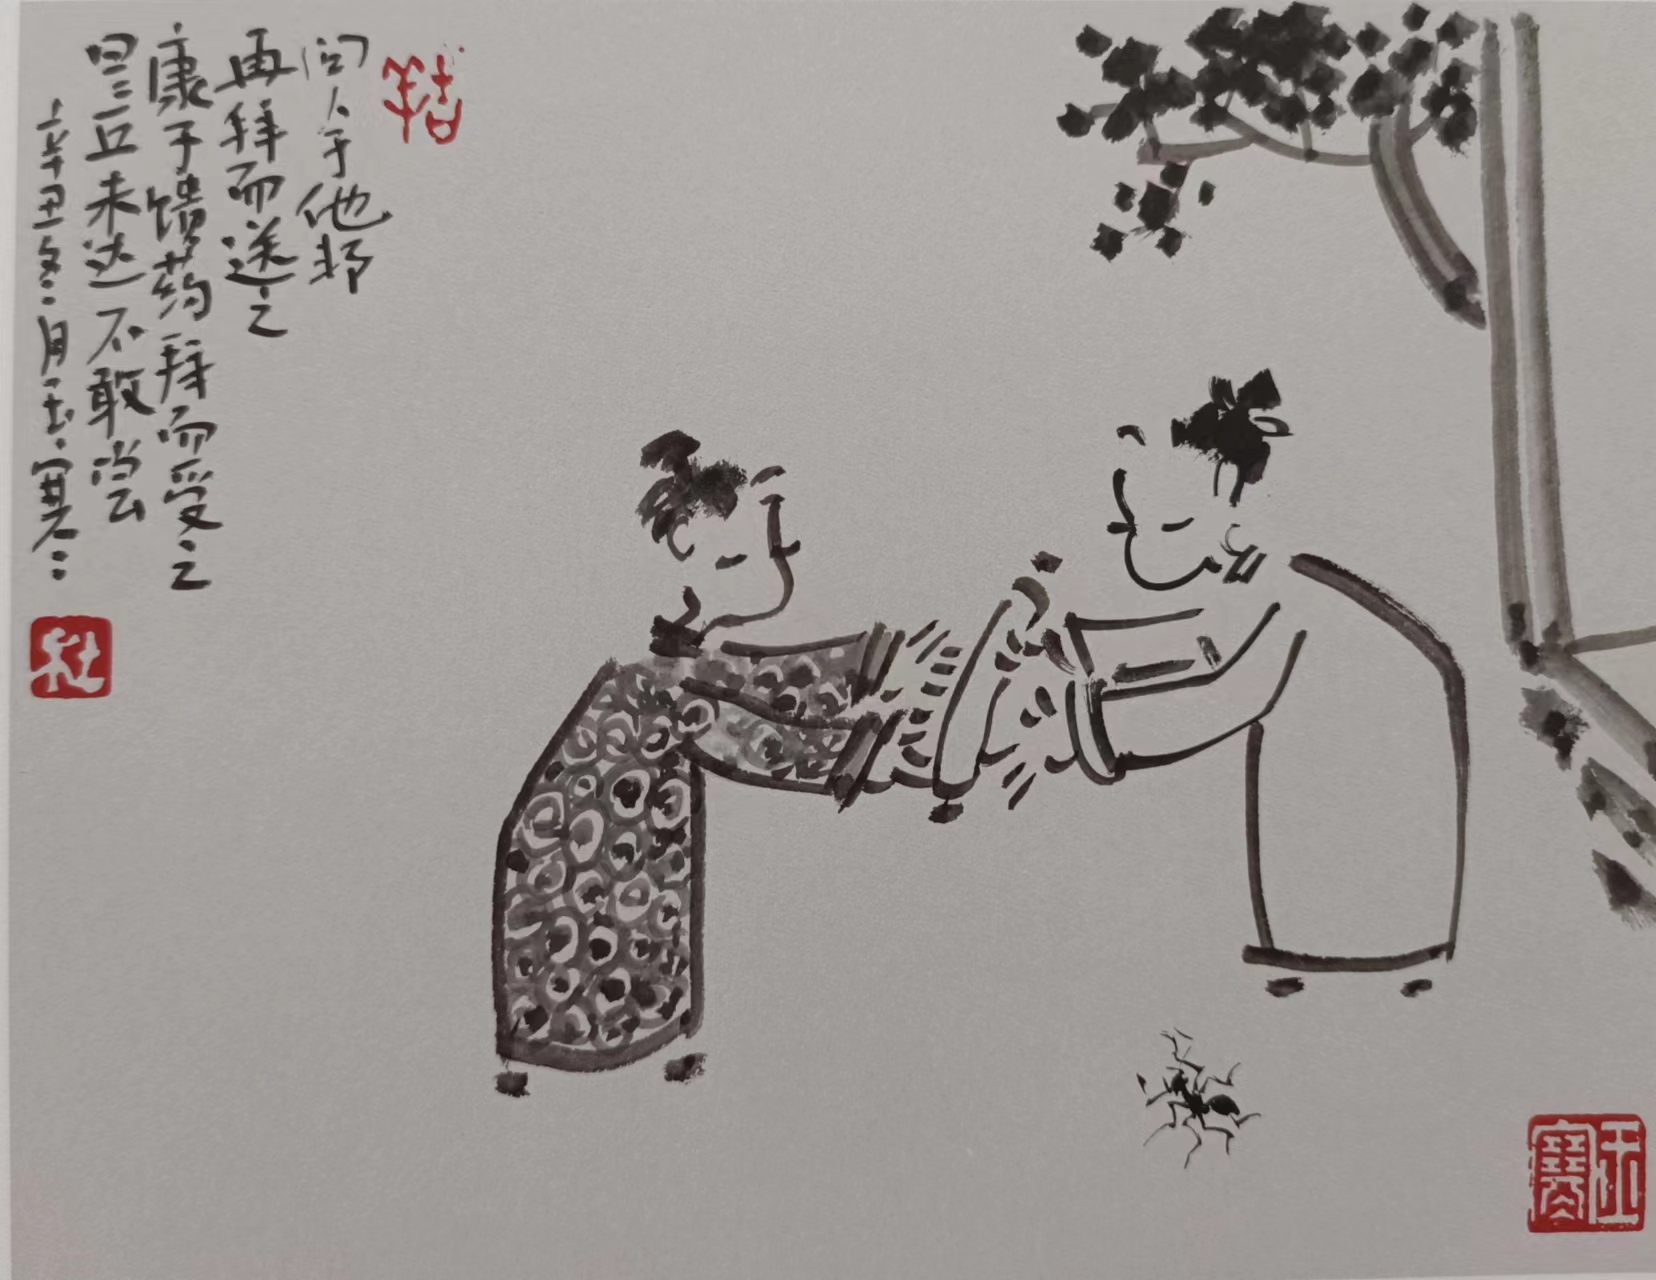 吉羊
问人于他邦
再拜而送之
康子馈药拜而受之
曰丘未达不敢尝
辛丑冬月玉寒